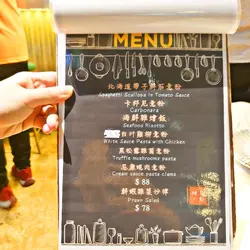 MENU
北海道帶子鮮茄意粉
Spaghetti Scallops In Tomato Sauce
卡邦尼意粉
Carbonara
海鮮雜燴飯
Seafood Risotto
白汁雞柳意粉
White Sauce Pasta with Chicken
黑松露雜菌意粉
Truffle mushrooms pasta
忌廉蜆肉意粉
Cream sauce pasta clams
$ 88
鮮蝦雜菜沙律
Prawn Salad
$ 78